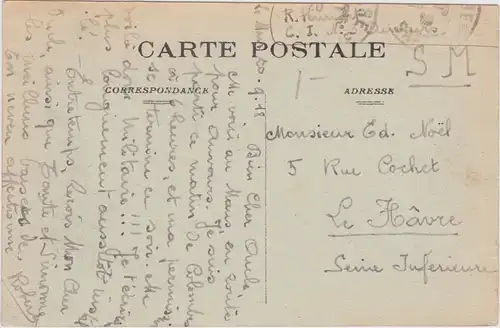 R.
C. I. N.
S M
CARTE POSTALE
CORRESPONDANCE
ADRESSE
le Mans, 20-9-18
Bien Cher Oncle
Me voici au Mans en route
pour Auvours. Je suis
parti ce matin de Colombes
à 6 heures, et ma permis.
se termine ce soir. Me
voilà donc militaire !!! Je t'écrirai
plus longuement aussitôt
Entretemps, reçois Mon Cher
Oncle ainsi que Tante et Simonne
les meilleurs baisers de
ton neveu affectionné
Robert
Monsieur Ed. Noël
5 Rue Cochet
Le Hâvre
Seine Inférieure